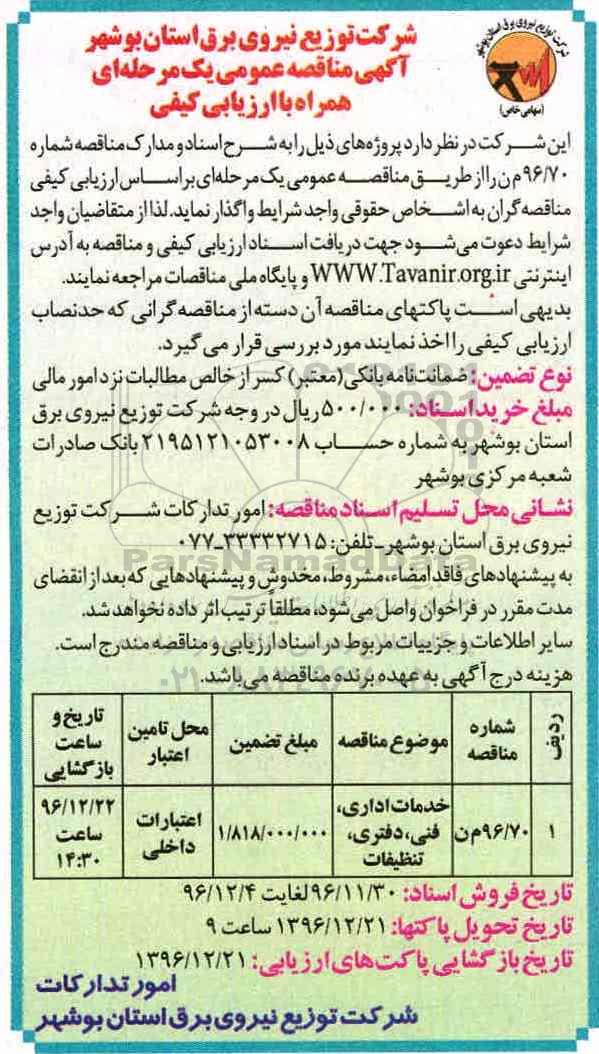 شرکت توزیع نیروی برق استان بوشهر
آگهی مناقصه عمومی یک مرحله‌ای
همراه با ارزیابی کیفی
شرکت توزیع نیروی برق استان بوشهر
(سهامی خاص)
این شرکت در نظر دارد پروژه‌های ذیل را به شرح اسناد و مدارک مناقصه شماره
۹۶/۷۰م ن را از طریق مناقصه عمومی یک مرحله‌ای بر اساس ارزیابی کیفی
مناقصه گران به اشخاص حقوقی واجد شرایط واگذار نماید. لذا از متقاضیان واجد
شرایط دعوت می‌شود جهت دریافت اسناد ارزیابی کیفی و مناقصه به آدرس
اینترنتی WWW.Tavanir.org.ir و پایگاه ملی مناقصات مراجعه نمایند.
بدیهی است پاکتهای مناقصه آن دسته از مناقصه گرانی که حدنصاب
ارزیابی کیفی را اخذ نمایند مورد بررسی قرار می گیرد.
نوع تضمین: ضمانت‌نامه بانکی (معتبر) کسر از خالص مطالبات نزد امور مالی
مبلغ خرید اسناد: ۵۰۰/۰۰۰ ریال در وجه شرکت توزیع نیروی برق
استان بوشهر به شماره حساب ۲۱۹۵۱۲۱۰۵۳۰۰۸ بانک صادرات
شعبه مرکزی بوشهر
نشانی محل تسلیم اسناد مناقصه: امور تدارکات شرکت توزیع
نیروی برق استان بوشهر-تلفن: ۳۳۳۳۲۷۱۵-۰۷۷
به پیشنهادهای فاقد امضاء، مشروط، مخدوش و پیشنهادهایی که بعد از انقضای
مدت مقرر در فراخوان واصل می‌شود، مطلقاً ترتیب اثر داده نخواهد شد.
سایر اطلاعات و جزییات مربوط در اسناد ارزیابی و مناقصه مندرج است.
هزینه درج آگهی به عهده برنده مناقصه می‌باشد.
ردیف | شماره مناقصه | موضوع مناقصه | مبلغ تضمین | محل تامین اعتبار | تاریخ و ساعت بازگشایی
۱ | ۹۶/۷۰م ن | خدمات اداری، فنی، دفتری، تنظیفات | ۱/۸۱۸/۰۰۰/۰۰۰ | اعتبارات داخلی | ۹۶/۱۲/۲۲ ساعت ۱۴:۳۰
تاریخ فروش اسناد: ۹۶/۱۱/۳۰ لغایت ۹۶/۱۲/۴
تاریخ تحویل پاکتها: ۱۳۹۶/۱۲/۲۱ ساعت ۹
تاریخ بازگشایی پاکت‌های ارزیابی: ۱۳۹۶/۱۲/۲۱
امور تدارکات
شرکت توزیع نیروی برق استان بوشهر
ParsNamadData